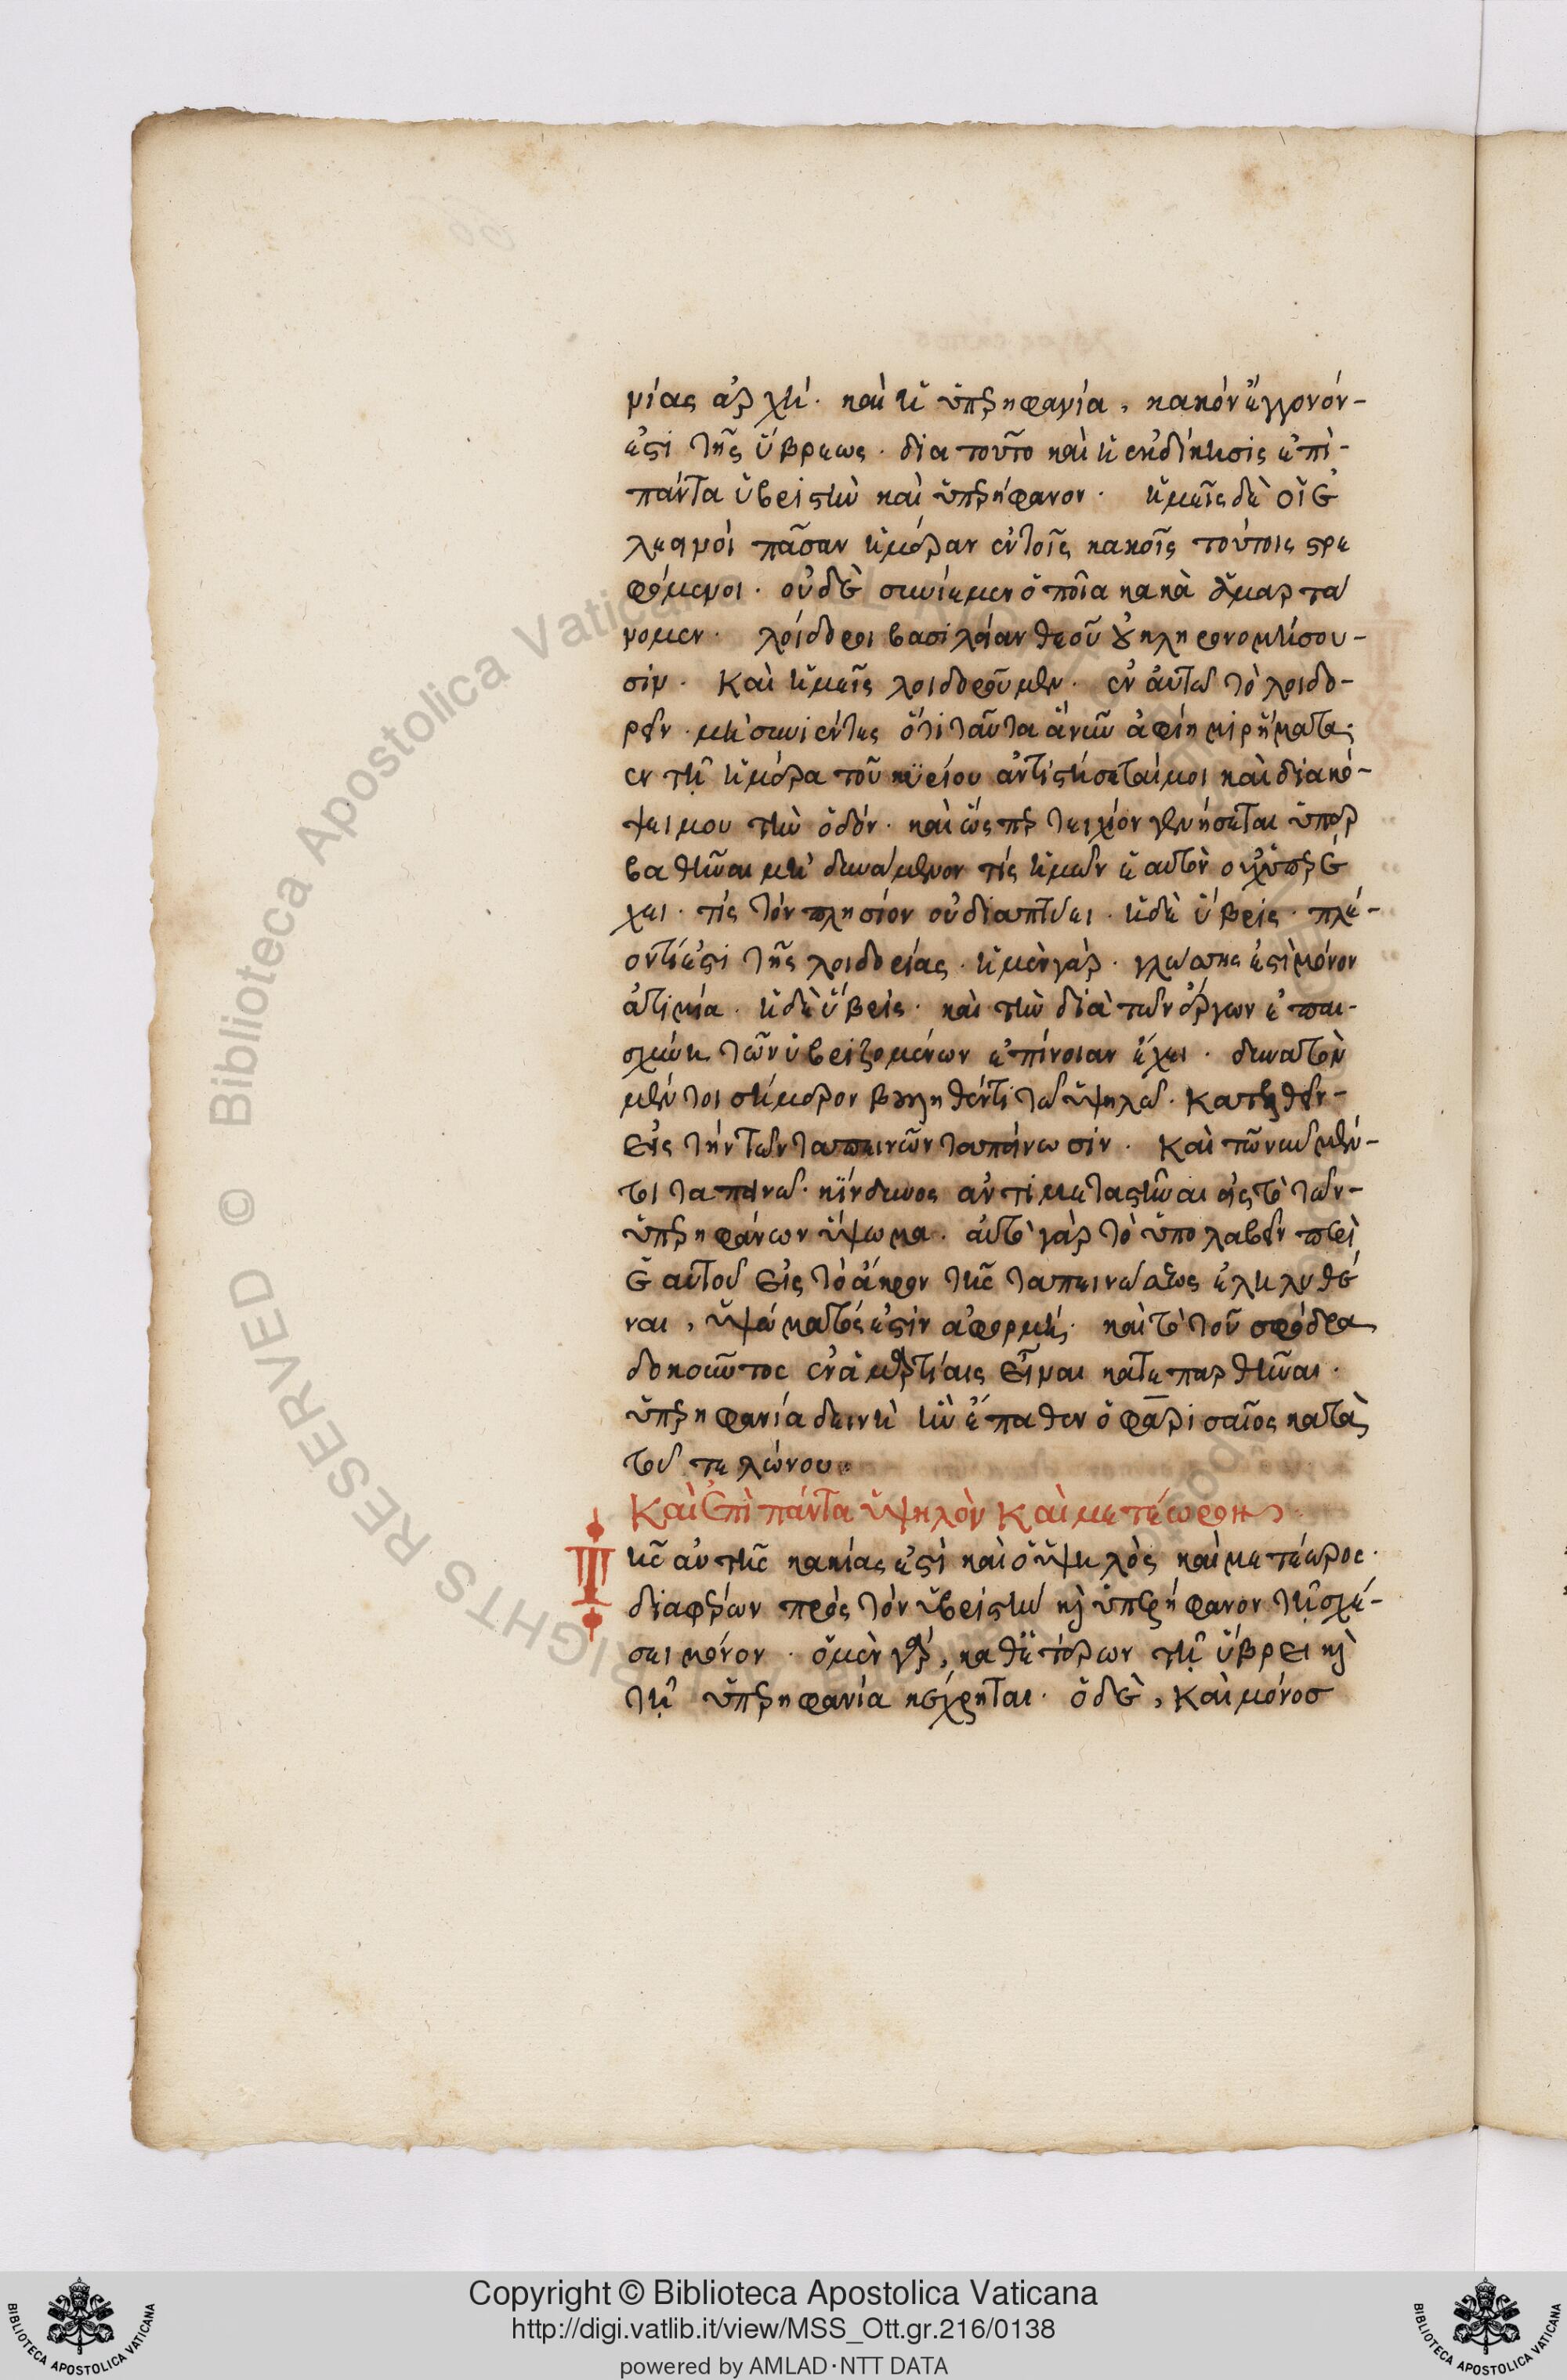 νίας ἀρχή· καὶ ἡ ὑπερηφανία, κακὸν ἔγγονόν-
ἐστι τῆς ὕβρεως· δια τοῦτο καὶ ἡ ἐκδίκησις ἐπὶ-
πάντα ὑβριστὴν καὶ ὑπερήφανον· ἡμεῖς δὲ οἱ ἐ
λεεινοὶ πᾶσαν ἡμέραν ἐν τοῖς κακοῖς τούτοις στρε
φόμενοι· οὐδὲ συνίεμεν ὁποῖα κακὰ ἁμαρτά
νομεν· λοίδοροι βασιλείαν θεοῦ οὐ κληρονομήσου-
σιν· Καὶ ἡμεῖς λοιδοροῦμεν· ἐν αὐτῶ τὸ λοιδο-
ρεῖν· μὴ συνιέντες ὅτι ταῦτα ἃ νῦν ἀφίημι ῥήματα·
ἐν τῇ ἡμέρα τοῦ κυρίου ἀντιστήσεταί μοι καὶ διακό-
ψει μου τὴν ὁδόν· καὶ ὥσπερ τειχίον γενήσεται ὑπερ
βαθῆναι μὴ δυνάμενον τίς ἡμῶν ἑαυτὸν οὐχ ὑπερέ
χει· τίς τὸν πλησίον οὐ διαπτύει· ἡ δὲ ὕβρις· πλέ-
ον τί ἐστι τῆς λοιδορίας· ἡ μὲν γὰρ· γλώσσης ἐστὶ μόνον
ἀτιμία· ἡ δὲ ὕβρις· καὶ τὴν διὰ τῶν ἔργων ἐπαι-
σχύνη τῶν ὑβριζομένων ἐπίνοιαν ἔχει· δυνατὸν
μέν τοι σήμερον βουληθέντι τῶ ὑψηλῶ· κατελθεῖν-
εἰς τὴν τῶν ταπεινῶν ταπείνωσιν· Καὶ τῶ νῦν μέν-
τοι ταπεινῶ· κίνδυνος ἀντιμεταστῆναι εἰς τὸ τῶν-
ὑπερηφάνων ὕψωμα· αὐτὸ γὰρ τὸ ὑπολαβεῖν περὶ
ἑαυτοῦ εἰς τὸ ἄκρον τῆς ταπεινώσεως ἐληλυθέ
ναι, ὑψώματός ἐστιν ἀφορμή· καὶ τὸ τοῦ σφόδρα
δοκοῦντος ἐν ἁμαρτίαις εἶναι κατεπαρθῆναι·
ὑπερηφανία δεινὴ ἣν ἔπαθεν ὁ φαρισαῖος κατὰ
τοῦ τελώνου·
Καὶ ἐπὶ πάντα ὑψηλὸν Καὶ μετέωρον·
Τῆς αὐτῆς κακίας ἐστὶ καὶ ὁ ὑψηλὸς καὶ μετέωρος·
διαφέρων πρὸς τὸν ὑβριστὴν καὶ ὑπερήφανον τῇ σχέ-
σει μόνον· ὁ μὲν γὰρ, καθ' ἑτέρων τῇ ὕβρει καὶ
τῇ ὑπερηφανία κέχρηται· ὁ δὲ, Καὶ μόνος
Copyright © Biblioteca Apostolica Vaticana
http://digi.vatlib.it/view/MSS_Ott.gr.216/0138
powered by AMLAD·NTT DATA